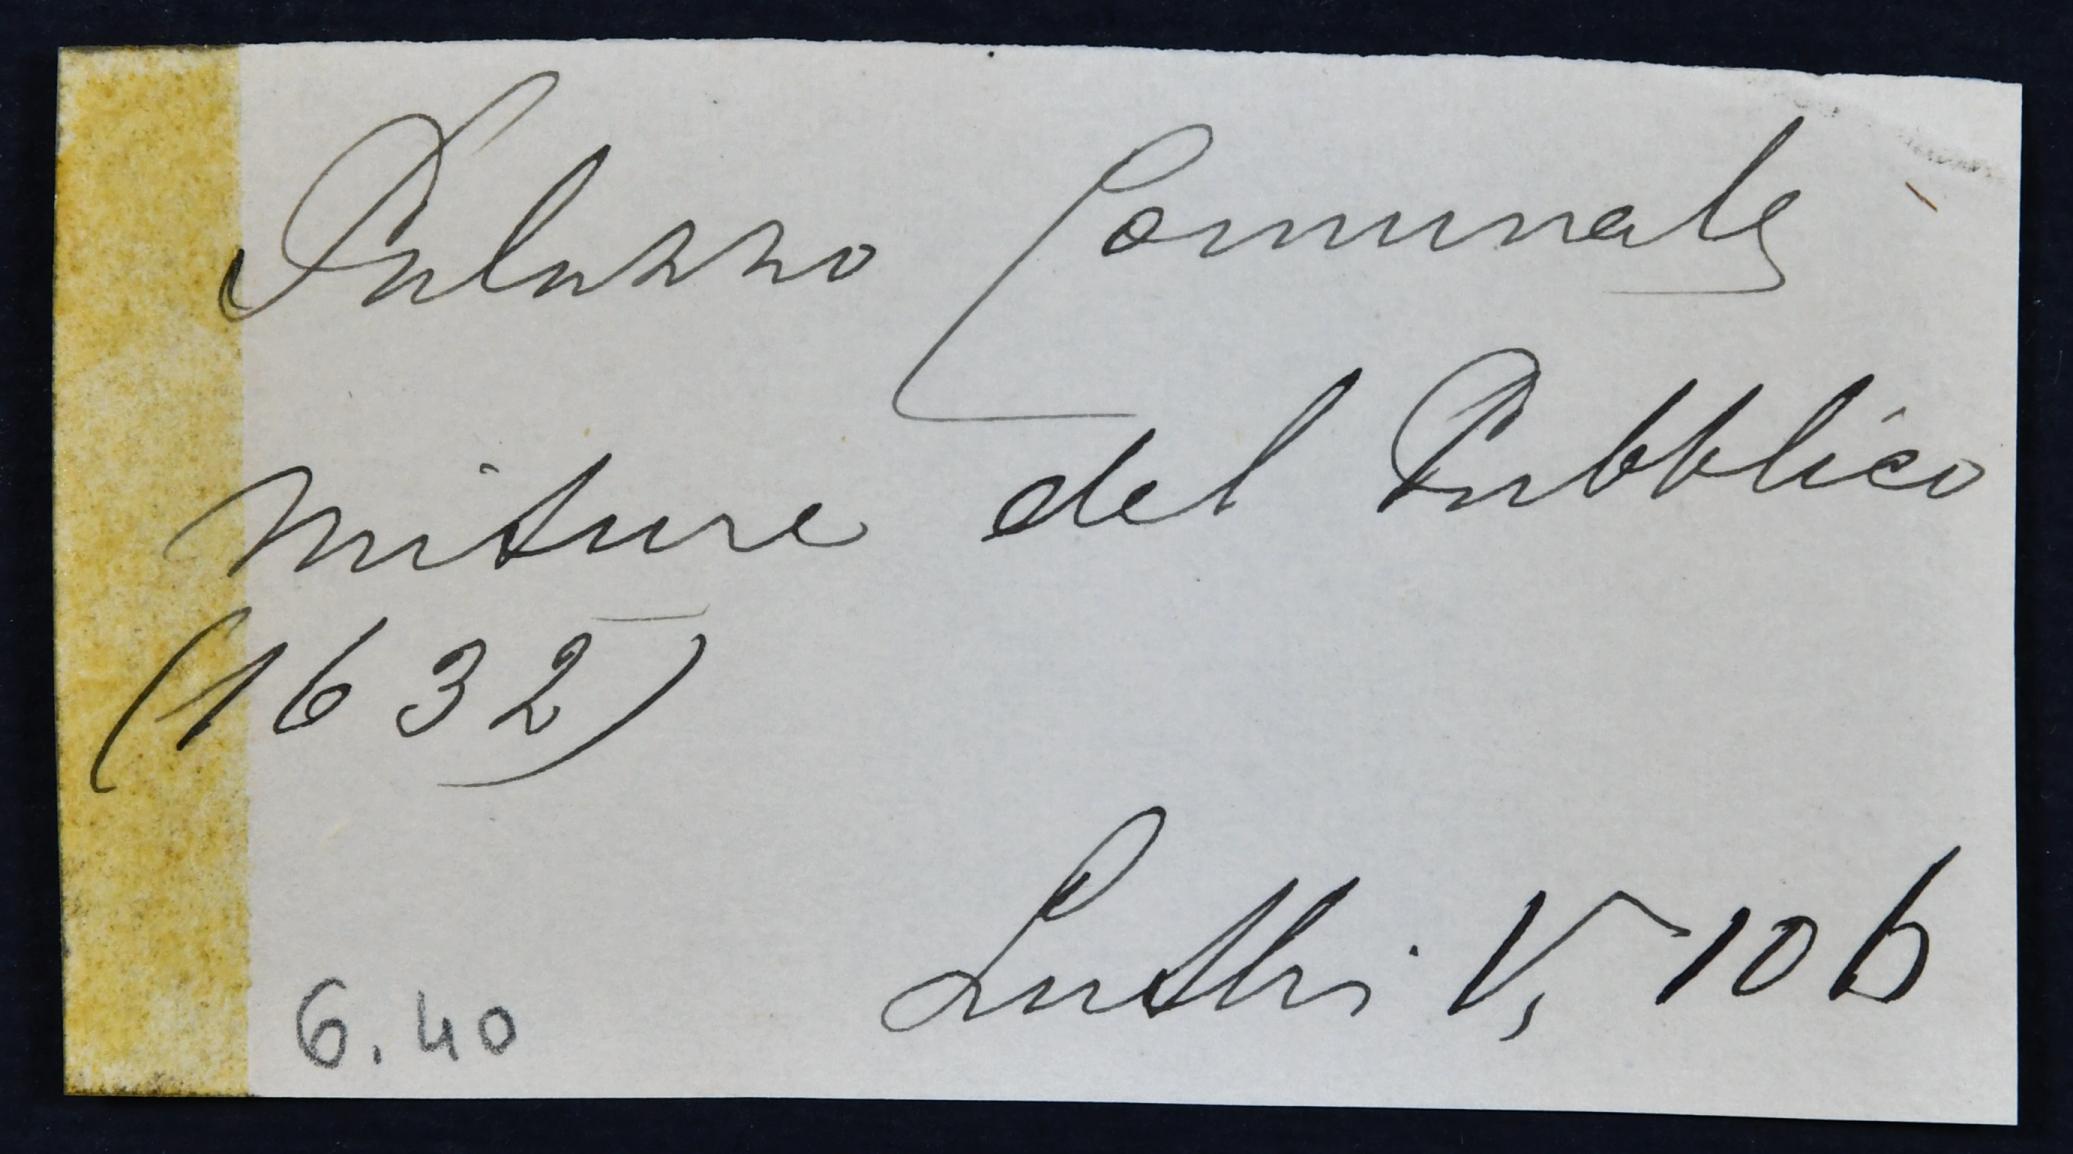 Palazzo Comunale
misure del Pubblico
(1632)
V, 106
6.40